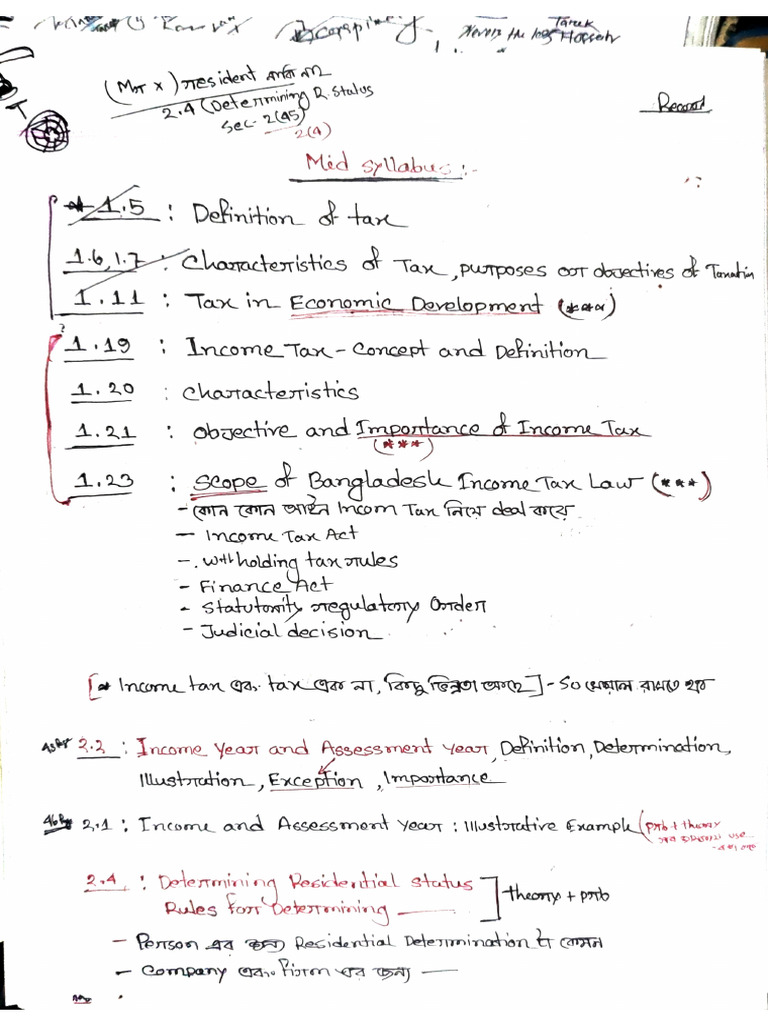 Tarek
Hossein
(Mr x) resident
2.4 (Determining R. Status
Sec-2(45)
2(4)
Record
Mid syllabus:-
* 1.5 : Definition of tax
1.6, 1.7 : Characteristics of Tax, purposes or objectives of Taxation
1.11 : Tax in Economic Development (***)
1.19 : Income Tax - Concept and Definition
1.20 : Characteristics
1.21 : Objective and Importance of Income Tax
(***)
1.23 : Scope of Bangladesh Income Tax Law (***)
- কোন কোন আইন Incom Tax নিয়ে deal করে
- Income Tax Act
- Withholding tax rules
- Finance Act
- Statutority regulatory Order
- Judicial decision
[* Income tax এবং tax এক না, কিছু ভিন্নতা আছে] - So খেয়াল রাখতে হবে
2.2 : Income Year and Assessment year, Definition, Determination,
Illustration, Exception, Importance
2.1 : Income and Assessment year : Illustrative Example (prb + theory
2.4 : Determining Residential Status
Rules for Determining
theory + prb
- Person এর জন্য Residential Determination টা কেমন
- Company এবং firm এর জন্য